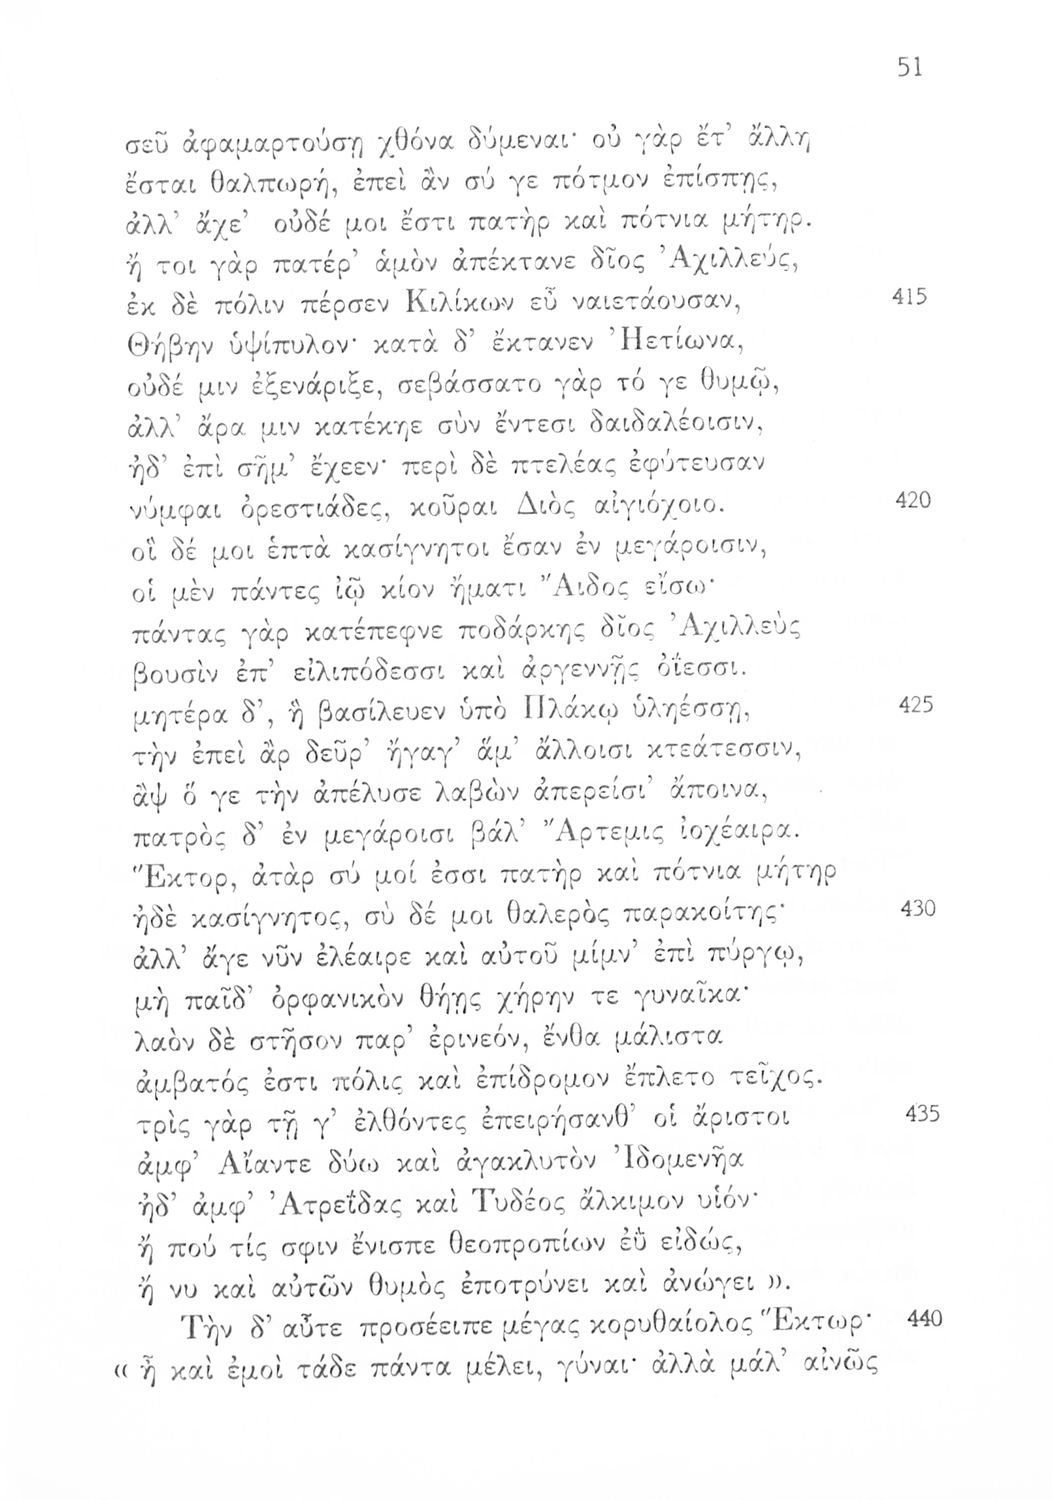 51
σεῦ ἀφαμαρτούσῃ χθόνα δύμεναι· οὐ γὰρ ἔτ’ ἄλλη
ἔσται θαλπωρή, ἐπεὶ ἂν σύ γε πότμον ἐπίσπῃς,
ἀλλ’ ἄχε’ οὐδέ μοι ἔστι πατὴρ καὶ πότνια μήτηρ.
ἤ τοι γὰρ πατέρ’ ἁμὸν ἀπέκτανε δῖος Ἀχιλλεύς,
ἐκ δὲ πόλιν πέρσεν Κιλίκων εὖ ναιετάουσαν, 415
Θήβην ὑψίπυλον· κατὰ δ’ ἔκτανεν Ἠετίωνα,
οὐδέ μιν ἐξενάριξε, σεβάσσατο γὰρ τό γε θυμῷ,
ἀλλ’ ἄρα μιν κατέκηε σὺν ἔντεσι δαιδαλέοισιν,
ἠδ’ ἐπὶ σῆμ’ ἔχεεν· περὶ δὲ πτελέας ἐφύτευσαν
νύμφαι ὀρεστιάδες, κοῦραι Διὸς αἰγιόχοιο. 420
οἳ δέ μοι ἑπτὰ κασίγνητοι ἔσαν ἐν μεγάροισιν,
οἱ μὲν πάντες ἰῷ κίον ἤματι Ἄιδος εἴσω·
πάντας γὰρ κατέπεφνε ποδάρκης δῖος Ἀχιλλεὺς
βουσὶν ἐπ’ εἰλιπόδεσσι καὶ ἀργεννῇς ὀΐεσσι.
μητέρα δ’, ἣ βασίλευεν ὑπὸ Πλάκῳ ὑληέσσῃ, 425
τὴν ἐπεὶ ἂρ δεῦρ’ ἤγαγ’ ἅμ’ ἄλλοισι κτεάτεσσιν,
ἂψ ὅ γε τὴν ἀπέλυσε λαβὼν ἀπερείσι’ ἄποινα,
πατρὸς δ’ ἐν μεγάροισι βάλ’ Ἄρτεμις ἰοχέαιρα.
Ἕκτορ, ἀτὰρ σύ μοί ἐσσι πατὴρ καὶ πότνια μήτηρ
ἠδὲ κασίγνητος, σὺ δέ μοι θαλερὸς παρακοίτης· 430
ἀλλ’ ἄγε νῦν ἐλέαιρε καὶ αὐτοῦ μίμν’ ἐπὶ πύργῳ,
μὴ παῖδ’ ὀρφανικὸν θήῃς χήρην τε γυναῖκα·
λαὸν δὲ στῆσον παρ’ ἐρινεόν, ἔνθα μάλιστα
ἀμβατός ἐστι πόλις καὶ ἐπίδρομον ἔπλετο τεῖχος.
τρὶς γὰρ τῇ γ’ ἐλθόντες ἐπειρήσανθ’ οἱ ἄριστοι 435
ἀμφ’ Αἴαντε δύω καὶ ἀγακλυτὸν Ἰδομενῆα
ἠδ’ ἀμφ’ Ἀτρεΐδας καὶ Τυδέος ἄλκιμον υἱόν·
ἤ πού τίς σφιν ἔνισπε θεοπροπίων ἐῢ εἰδώς,
ἤ νυ καὶ αὐτῶν θυμὸς ἐποτρύνει καὶ ἀνώγει ».
Τὴν δ’ αὖτε προσέειπε μέγας κορυθαίολος Ἕκτωρ· 440
« ἦ καὶ ἐμοὶ τάδε πάντα μέλει, γύναι· ἀλλὰ μάλ’ αἰνῶς